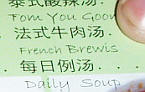 泰式酸辣汤
Tom You Goon
法式牛肉汤
French Brewis
每日例汤. .
Daily Soup